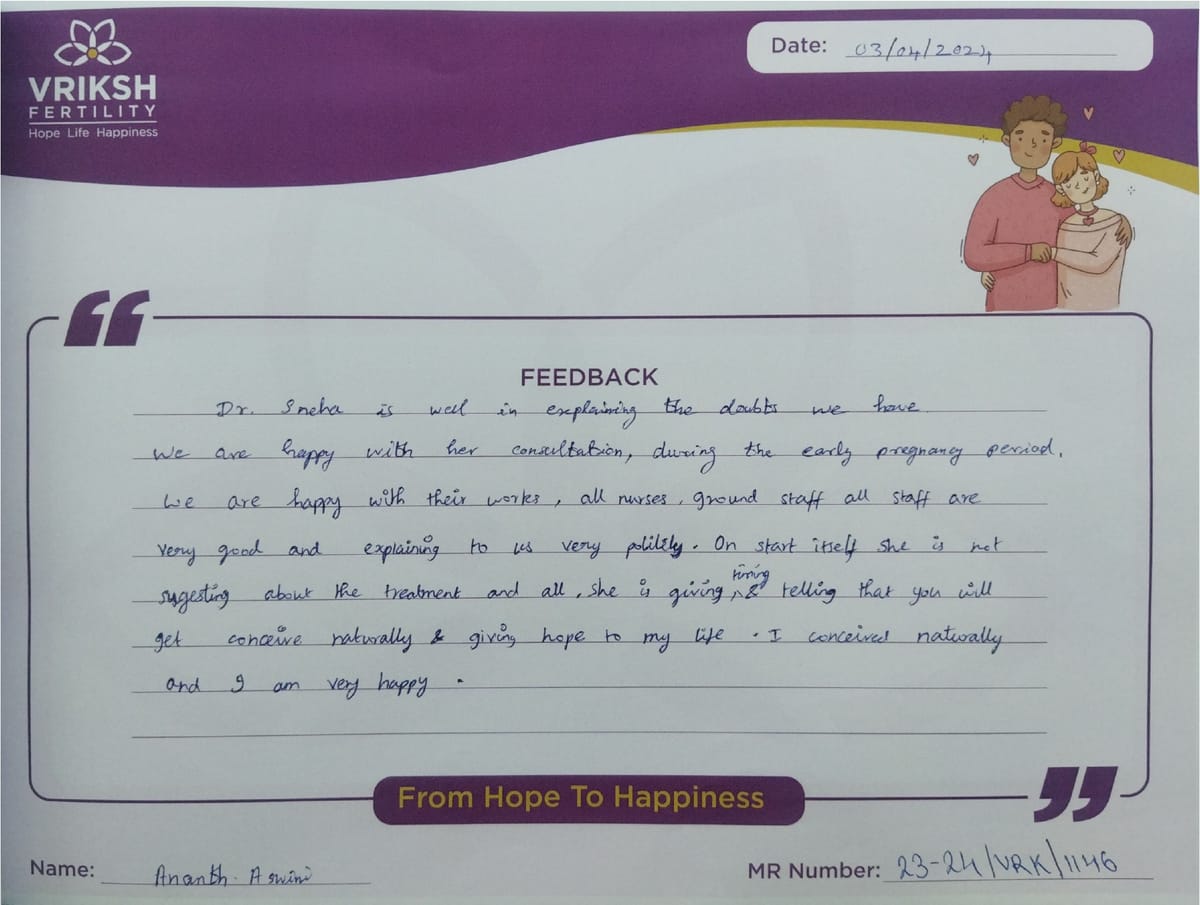 VRIKSH
FERTILITY
Hope Life Happiness
Date: 03/04/2024
FEEDBACK
Dr. Sneha is well in explaining the doubts we have
We are happy with her consultation, during the early pregnancy period.
We are happy with their works, all nurses, ground staff all staff are
very good and explaining to us very politily. On start itself she is not
sugesting about the treatment and all, she is giving timing & telling that you will
get conceive naturally & giving hope to my life. I conceived naturally
and I am very happy.
From Hope To Happiness
Name: Ananth. Aswini
MR Number: 23-24/VRK/1146